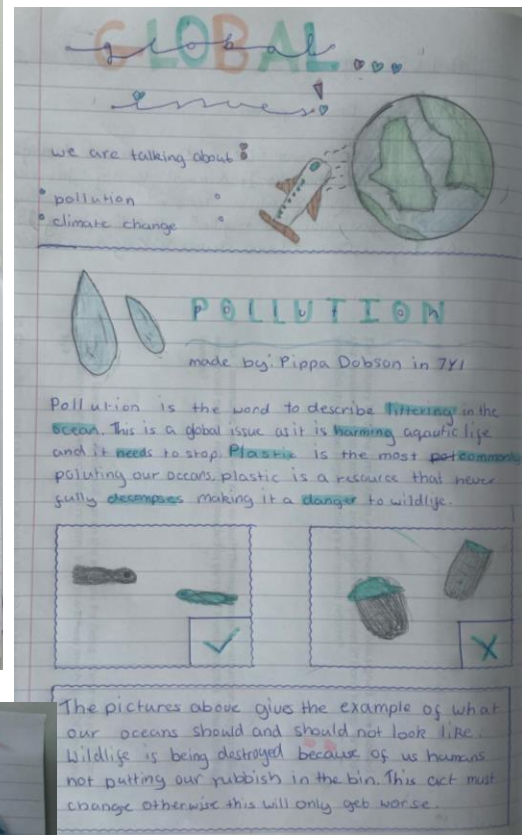 GLOBAL
global...
issues!
we are talking about:
• pollution
• climate change
POLLUTION
made by: Pippa Dobson in 7Y1
Pollution is the word to describe littering in the
ocean. This is a global issue as it is harming aqautic life
and it needs to stop. Plastic is the most commonly
poluting our oceans. plastic is a resource that never
fully decompses making it a danger to wildlife.
The pictures above gives the example of what
our oceans should and should not look like.
Wildlife is being destroyed because of us humans
not putting our rubbish in the bin. This act must
change otherwise this will only get worse.